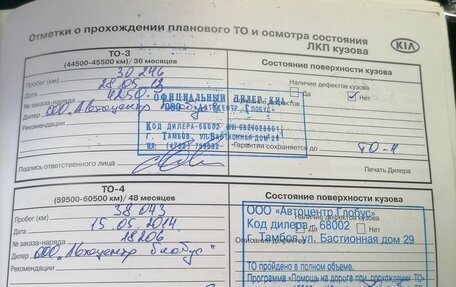 Отметки о прохождении планового ТО и осмотра состояния
ЛКП кузова
KIA
ТО-3
(44500-45500 км)/ 36 месяцев
Состояние поверхности кузова
Пробег (км) 30 246
Наличие дефектов кузова
Дата
Да Нет
№ заказа-наряда
Дилер ООО „Автоцентр
ОФИЦИАЛЬНЫЙ ДИЛЕР КИА
Рекомендации
КОД ДИЛЕРА-68002
Г. ТАМБОВ, УЛ. БАСТИОННАЯ ДОМ 29
Гарантия сохраняется до ТО-4
Подпись ответственного лица
Печать Дилера
ТО-4
(59500-60500 км)/ 48 месяцев
Состояние поверхности кузова
Пробег (км) 38 043
Дата 15.05.2014
№ заказа-наряда 18206
Дилер ООО „Автоцентр Глобус"
Рекомендации
ООО «Автоцентр Глобус»
Код дилера 68002
г.Тамбов,ул. Бастионная дом 29
ТО пройдено в полном объеме.
Программа «Помощь на дороге при прохождении ТО»